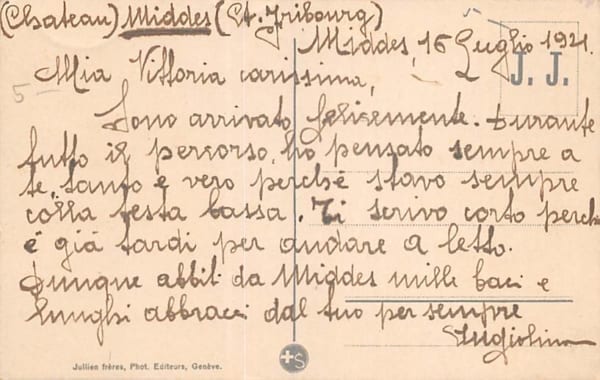 (Chateau) Middes (Ct. Fribourg)
Middes, 16 Luglio 1921.
J. J.
5 -
Mia Vittoria carissima,
Sono arrivato felicemente. Durante
tutto il percorso, ho pensato sempre a
te, tanto è vero perchè stavo sempre
colla testa bassa. Ti scrivo corto perchè
è già tardi per andare a letto.
Dunque abbiti da Middes mille baci e
lunghi abbracci dal tuo per sempre
Luigiolino
Jullien frères, Phot. Editeurs, Genève.
S